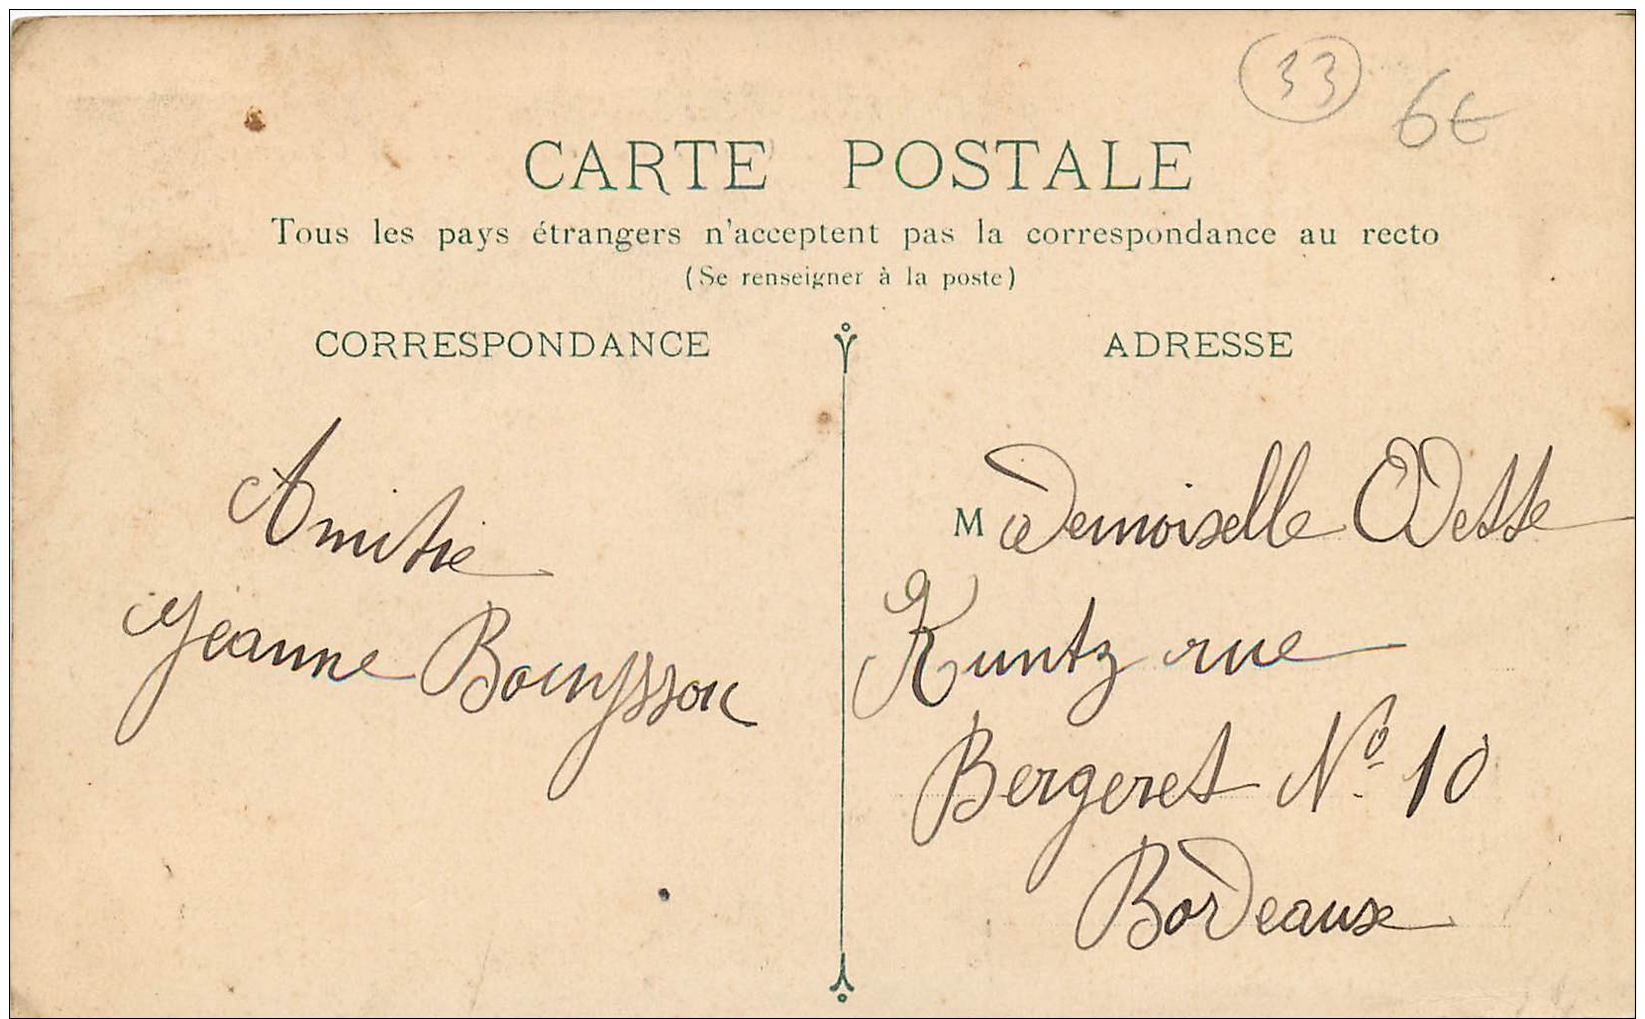 33
6€
CARTE POSTALE
Tous les pays étrangers n'acceptent pas la correspondance au recto
(Se renseigner à la poste)
CORRESPONDANCE
Amitié
Jeanne Bouyssou
ADRESSE
Mademoiselle Odette
Kuntz rue
Bergeret Nº 10
Bordeaux